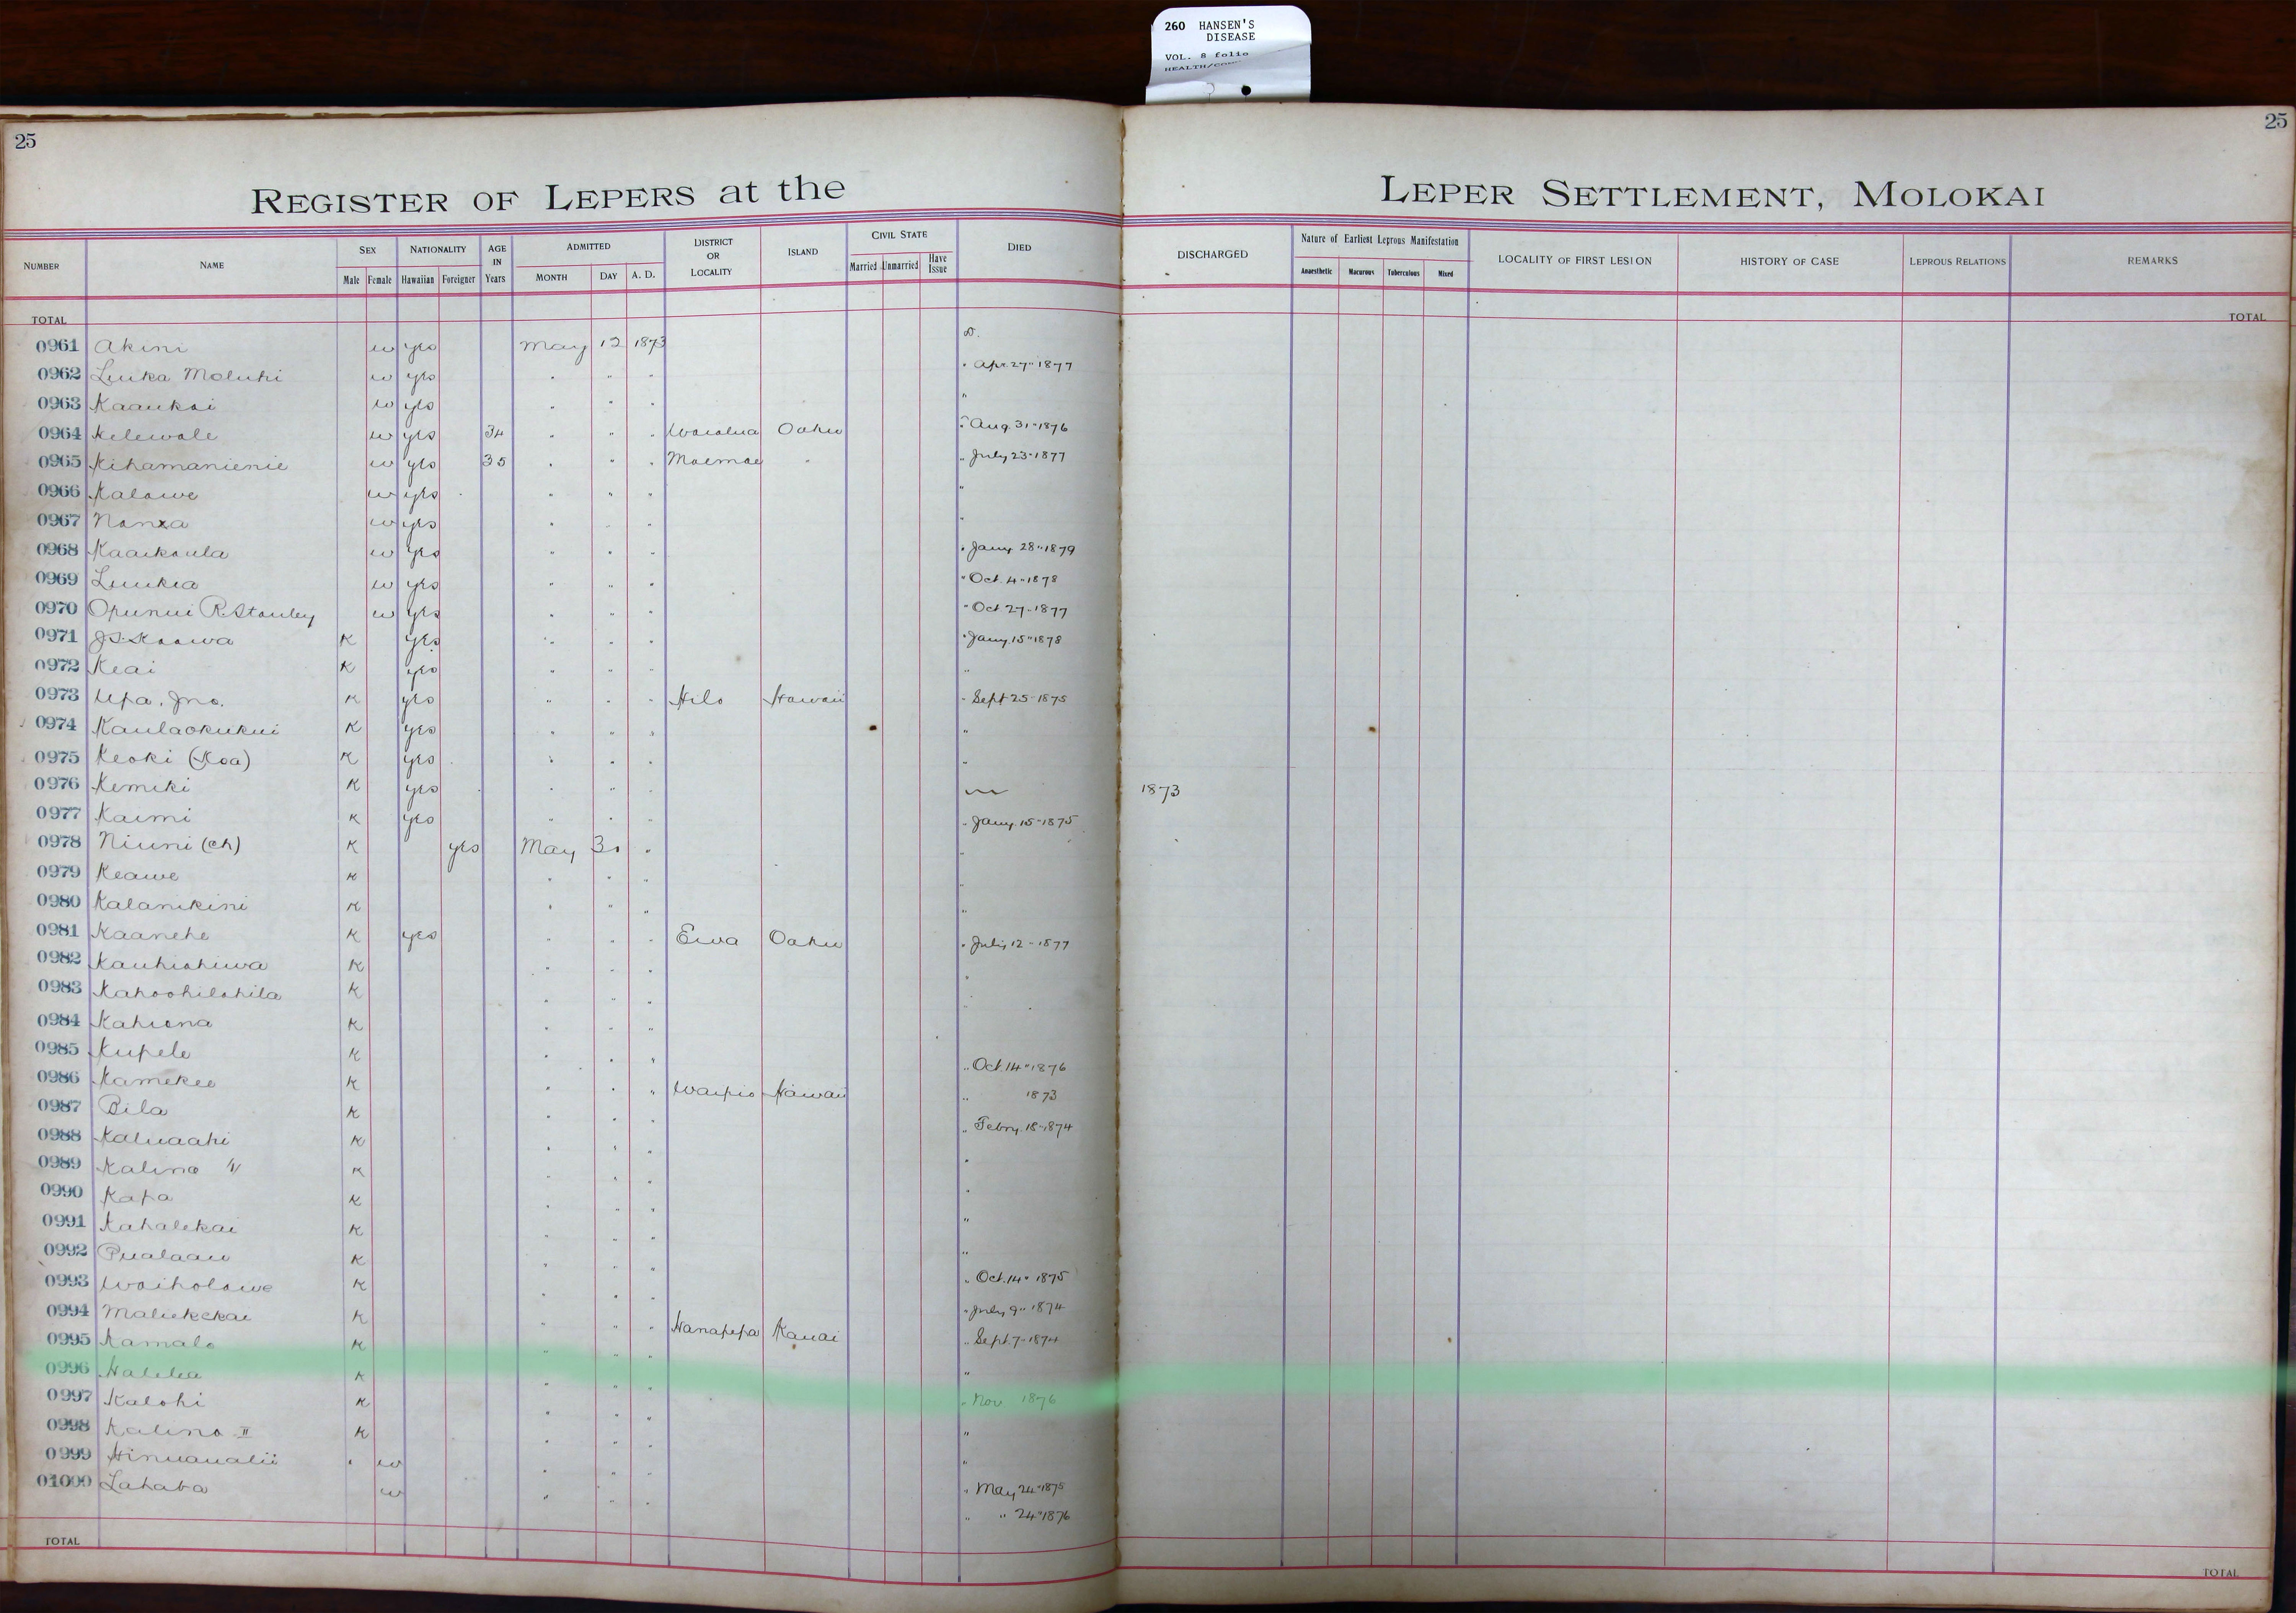 260 HANSEN'S
DISEASE
VOL. 8 folio
25
25
REGISTER OF LEPERS at the
LEPER SETTLEMENT, MOLOKAI
NUMBER NAME SEX Male Female NATIONALITY Hawaiian Foreigner AGE IN Years ADMITTED MONTH DAY A. D. DISTRICT OR LOCALITY ISLAND CIVIL STATE Married Unmarried Have Issue DIED DISCHARGED Nature of Earliest Leprous Manifestation Anaesthetic Macurous Tuberculous Mixed LOCALITY OF FIRST LESION HISTORY OF CASE LEPROUS RELATIONS REMARKS
TOTAL TOTAL
0961 Akini w yes May 12 1873 D.
0962 Luika w yes " " " " Apr. 27" 1877
0963 Kaaukai w yes " " " "
0964 Kelewale w yes 34 " " " Waialua Oahu " Aug. 31" 1876
0965 Kihamanienie w yes 35 " " " " July 23" 1877
0966 Kalawe w yes " " " "
0967 w yes " " " "
0968 Kaaikaula w yes " " " " Jany 28" 1879
0969 Luukia w yes " " " " Oct. 4" 1878
0970 Opunui R. Stanley w yes " " " " Oct 27" 1877
0971 K yes " " " " Jany. 15" 1878
0972 Keai K yes " " " "
0973 Upa. Jno. K yes " " " Hilo Hawaii " Sept 25" 1875
0974 Kaulaokukui K yes " " " "
0975 Keoki (Koa) K yes " " " "
0976 Kemiki K yes " " " 1873
0977 Kaimi K yes " " " " Jany. 15" 1875
0978 Niuni (ch) K yes May 30 " "
0979 Keawe K " " " "
0980 Kalanikini K " " " "
0981 Kaanehe K yes " " " Ewa Oahu " July 12" 1877
0982 Kauhiohiwa K " " " "
0983 Kahoohilohila K " " " "
0984 Kahiona K " " "
0985 Kupele K " " " " Oct. 14" 1876
0986 Kamekeo K " " " Waipio Hawaii " 1873
0987 Bila K " " " " Febry. 18" 1874
0988 Kaluaahi K " " " "
0989 Kalino K " " " "
0990 Kapa K " " " "
0991 Kahalekai K " " " "
0992 Pualaau K " " " " Oct. 14" 1875
0993 Waiholowe K " " " " July 9" 1874
0994 Maliekekai K " " " Hanapepa Kauai " Sept. 7" 1874
0995 Kamalo K " " " "
0996 Halelea K " " " " Nov 1876
0997 Kalohi K " " " "
0998 Kalino II K " " " "
0999 Hinuaualii w " " " " May 24" 1875
01000 Lahaba w " " " " " 24" 1876
TOTAL TOTAL